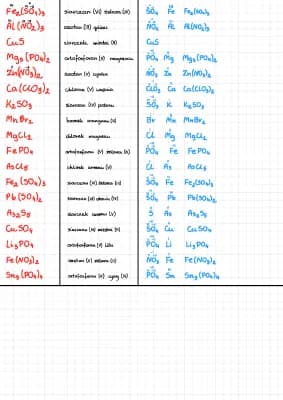 Fe₂(SO₄)₃ siarczan (VI) żelaza (III) SO₄ Fe Fe₂(SO₄)₃
Al(NO₂)₃ azotan (III) glinu NO₂ Al Al(NO₂)₃
CuS siarczek miedzi (II) CuS
Mg₃(PO₄)₂ ortofosforan (V) magnezu PO₄ Mg Mg₃(PO₄)₂
Zn(NO₃)₂ azotan (V) cynku NO₃ Zn Zn(NO₃)₂
Ca(ClO₃)₂ chloran (V) wapnia ClO₃ Ca Ca(ClO₃)₂
K₂SO₃ siarczan (IV) potasu SO₃ K K₂SO₃
MnBr₂ bromek manganu (II) Br Mn MnBr₂
MgCl₂ chlorek magnezu Cl Mg MgCl₂
FePO₄ ortofosforan (V) żelaza (III) PO₄ Fe FePO₄
AsCl₅ chlorek arsenu (V) Cl As AsCl₅
Fe₂(SO₄)₃ siarczan (VI) żelaza (III) SO₄ Fe Fe₂(SO₄)₃
Pb(SO₄)₂ siarczan (VI) ołowiu (IV) SO₄ Pb Pb(SO₄)₂
As₂S₅ siarczek arsenu (V) S As As₂S₅
CuSO₄ siarczan (VI) miedzi (II) SO₄ Cu CuSO₄
Li₃PO₄ ortofosforan (V) litu PO₄ Li Li₃PO₄
Fe(NO₃)₂ azotan (V) żelaza (II) NO₃ Fe Fe(NO₃)₂
Sn₃(PO₄)₄ ortofosforan (V) cyny (IV) PO₄ Sn Sn₃(PO₄)₄